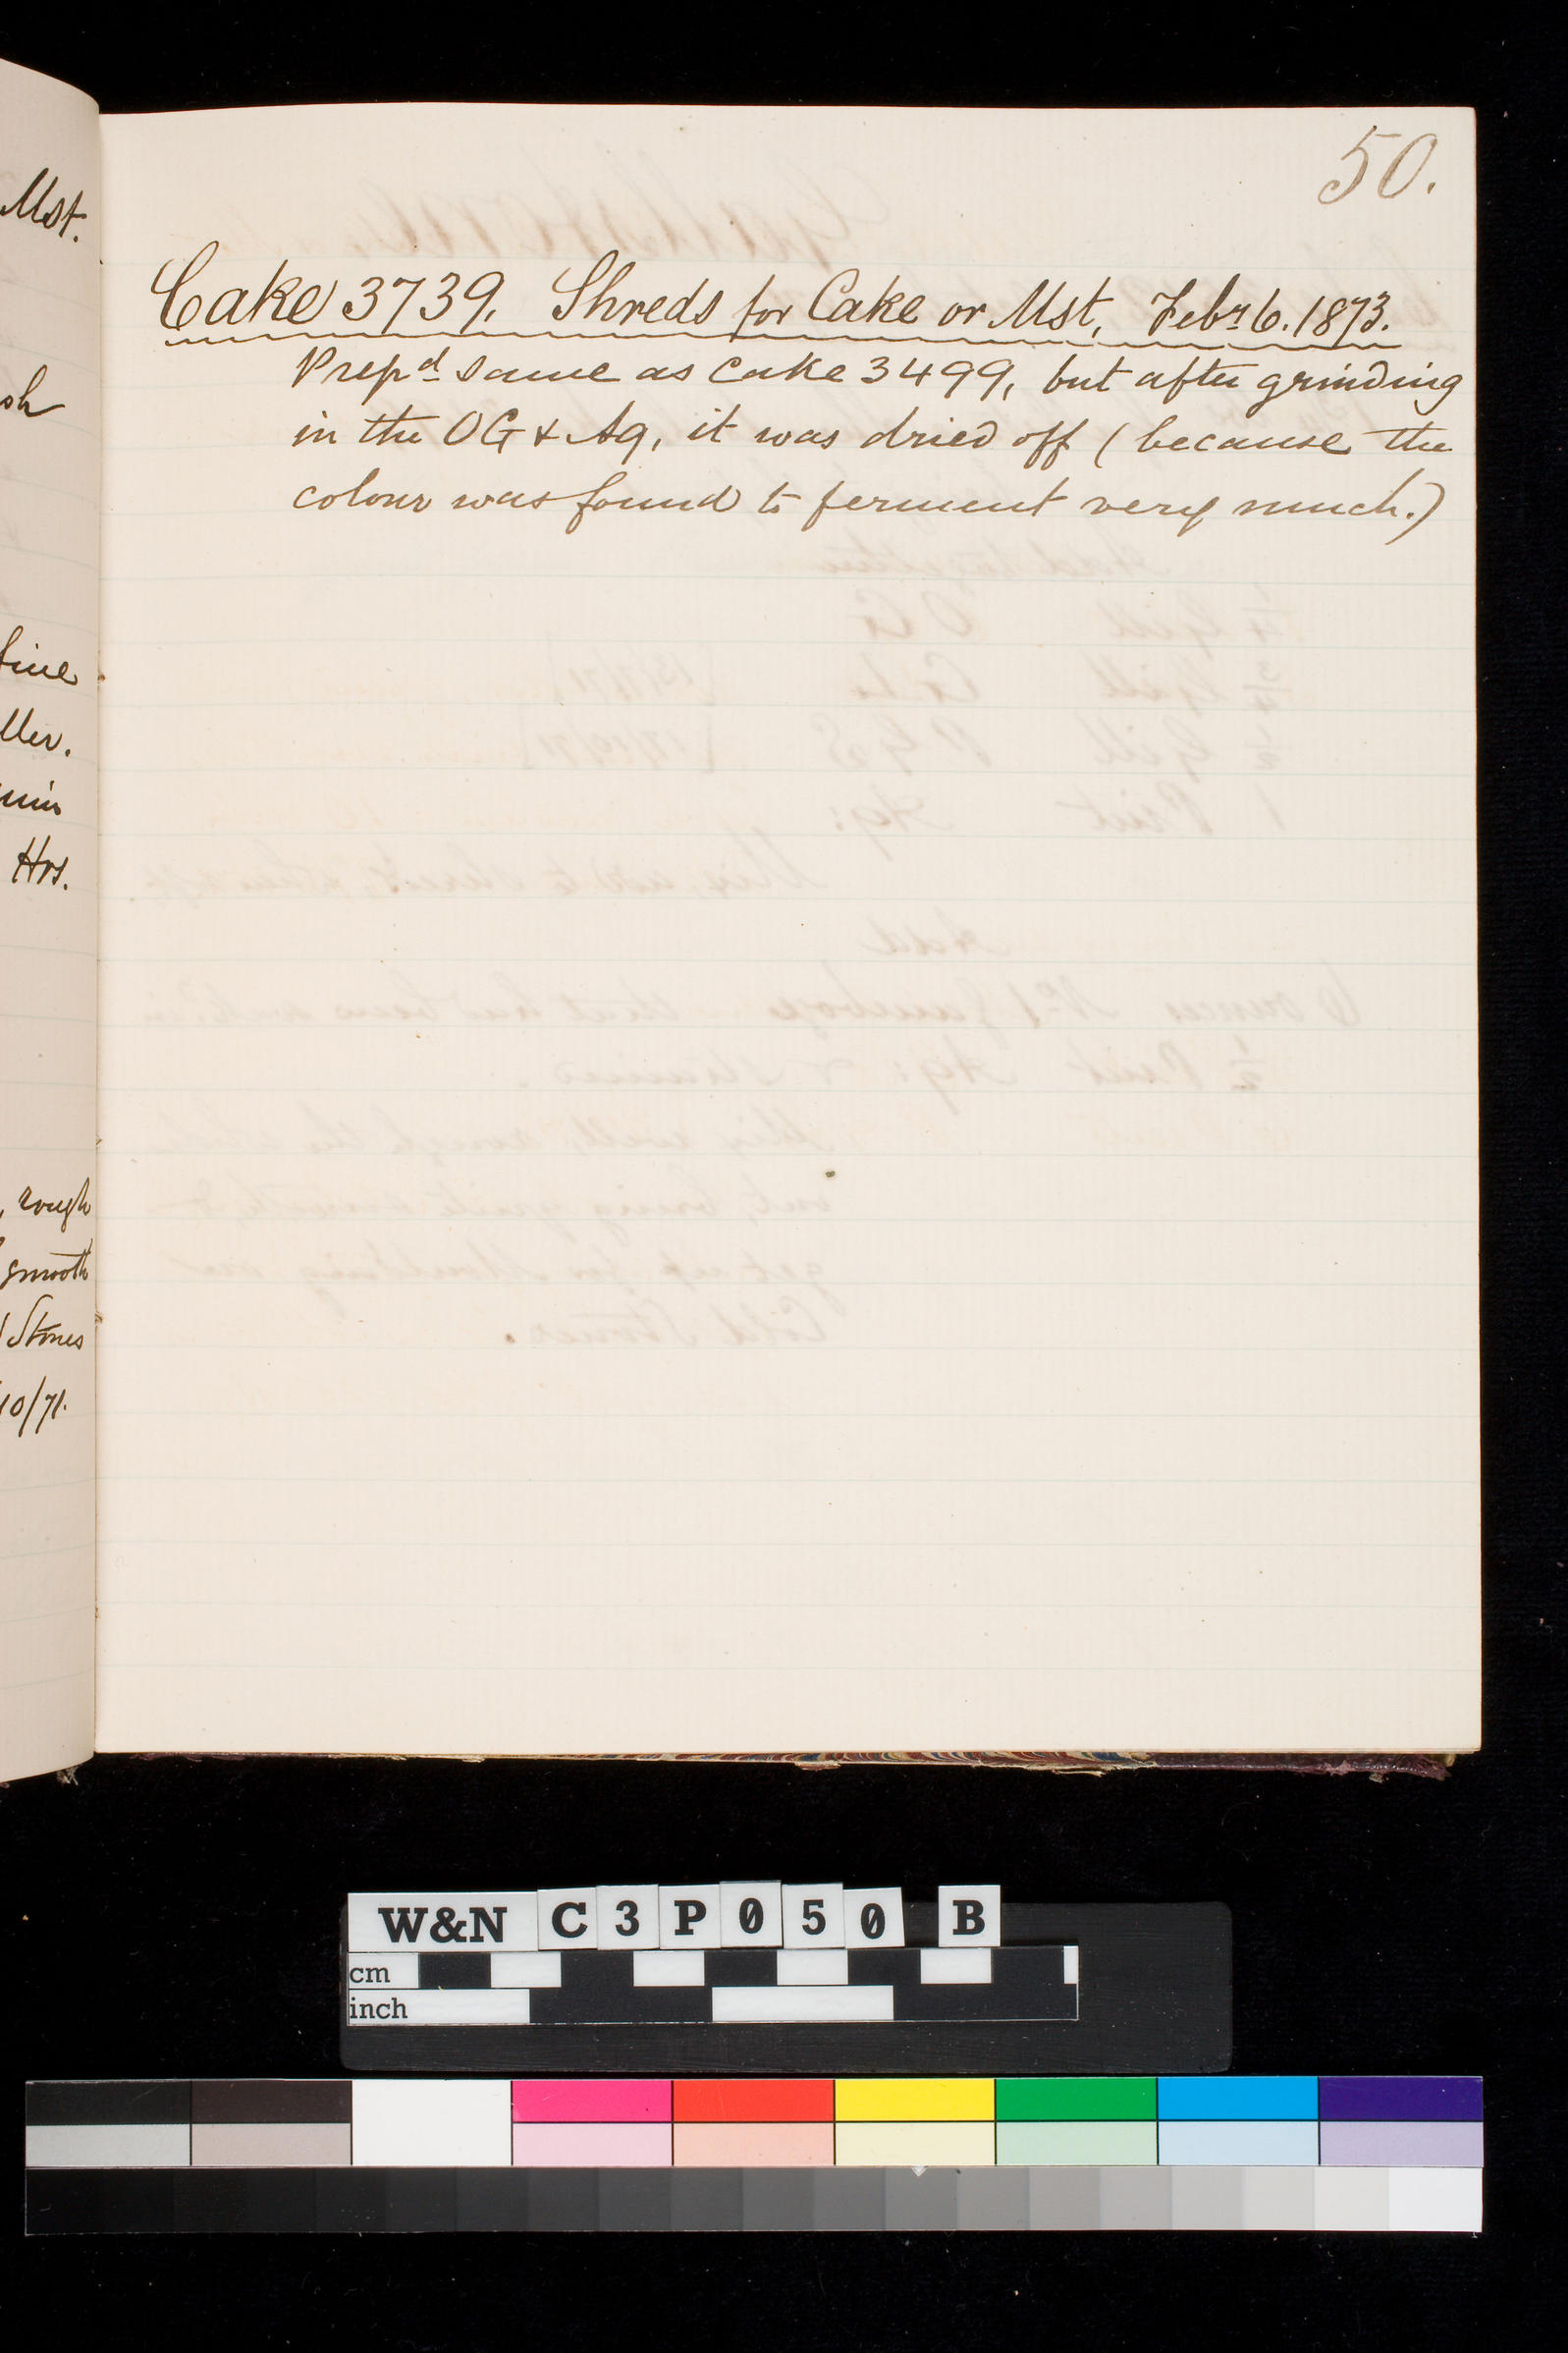 Mst.
sh
fine
ller.
min
Hrs.
, rough
smooth
Stones
10/71.
50.
Cake 3739. Shreds for Cake or Mst, Febr 6. 1873.
Prepd same as Cake 3499, but after grinding
in the OG & Aq, it was dried off (because the
colour was found to ferment very much.)
W&N C3P050 B
cm
inch